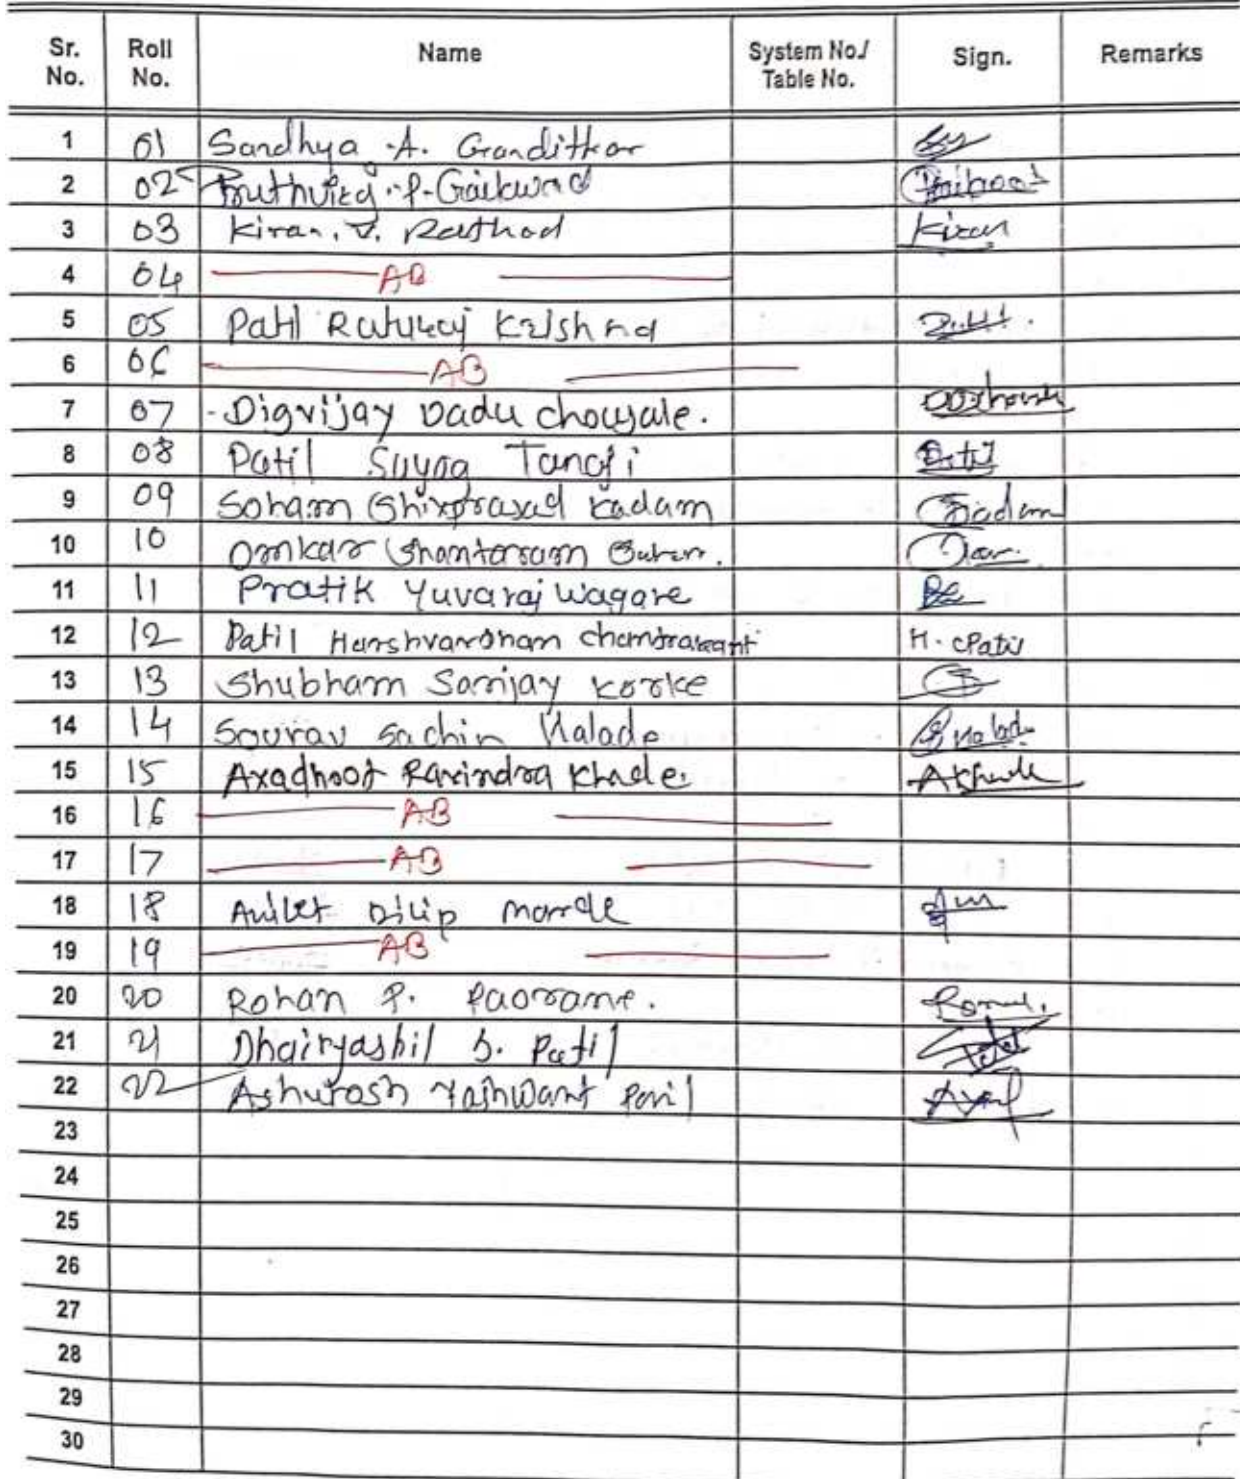 Sr. No. Roll No. Name System No./ Table No. Sign. Remarks
1 01 Sandhya A. Grandithar
2 02 Pruthviraj P. Gaikwad Gaikwad
3 03 Kiran. V. Rathod Kiran
4 04 AB
5 05 Patil Ruturaj Krishna
6 06 AB
7 07 Digvijay Dadu chougale.
8 08 Patil Suyog Tanaji Patil
9 09 Soham Shivprasad Kadam Kadam
10 10 Omkar Shantaram
11 11 Pratik Yuvaraj Wagare
12 12 Patil Harshvardhan chandrakant H. C Patil
13 13 Shubham Sanjay Korke
14 14 Sourav Sachin Nalade
15 15 Avadhoot Ravindra Khade.
16 16 AB
17 17 AB
18 18 Aniket Dilip
19 19 AB
20 20 Rohan P.
21 21 Dhairyashil S. Patil
22 22 Ashutosh Yashwant
23
24
25
26
27
28
29
30